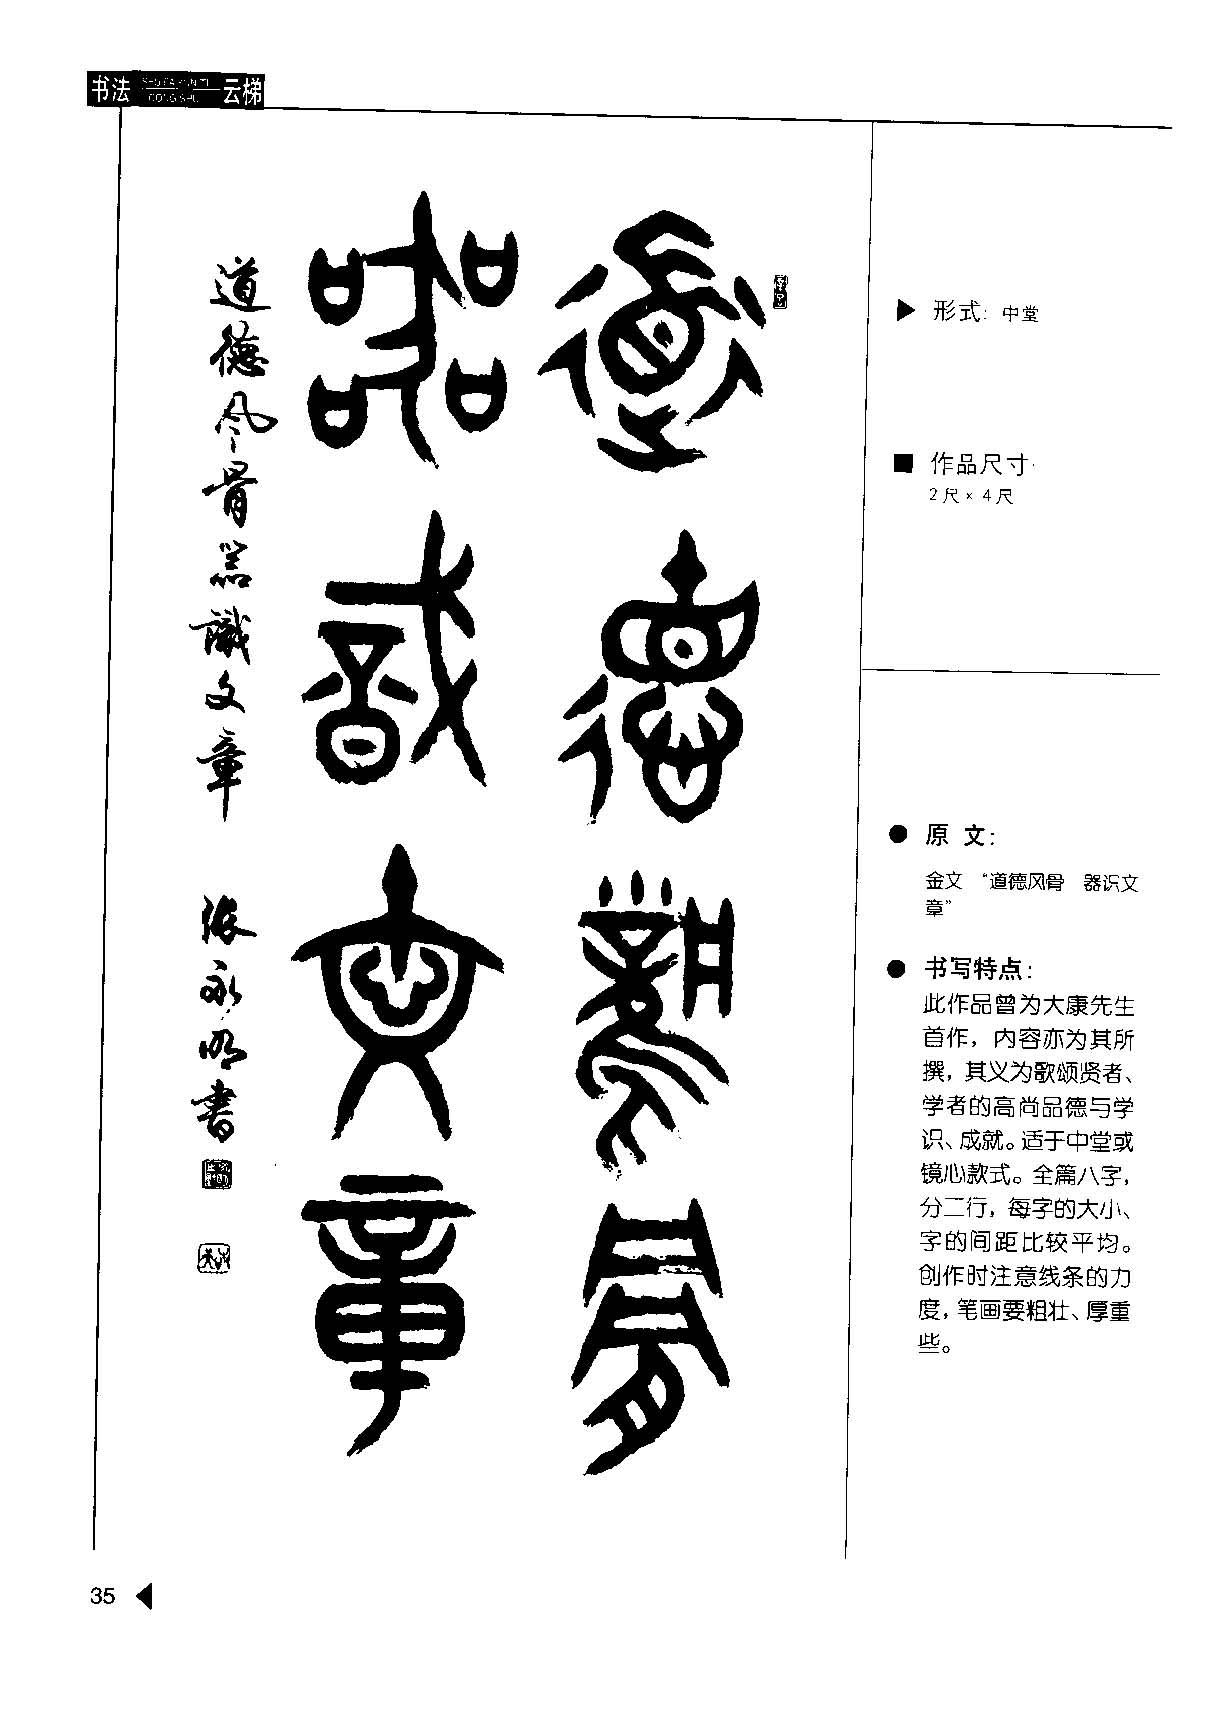 书法 云梯
道德风骨
器识文章
道德风骨器識文章 张永明書
形式：中堂
作品尺寸：
2尺×4尺
原 文：
金文 “道德风骨 器识文
章”
书写特点：
此作品曾为大康先生
首作，内容亦为其所
撰，其义为歌颂贤者、
学者的高尚品德与学
识、成就。适于中堂或
镜心款式。全篇八字，
分二行，每字的大小、
字的间距比较平均。
创作时注意线条的力
度，笔画要粗壮、厚重
些。
35